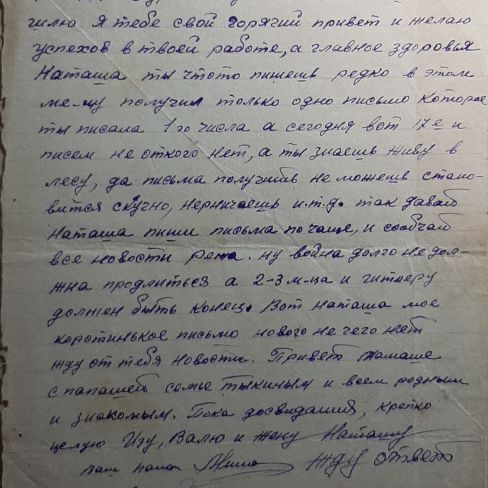 шлю я тебе свой горячий привет и желаю
успехов в твоей работе, а главное здоровья
Наташа ты чтото пишешь редко в этом
ме-цу получил только одно письмо которое
ты писала 1го числа а сегодня вот 17е и
писем не откого нет, а ты знаешь живу в
лесу, да письма получить не можешь стано-
вится скучно, нерничаешь и.т.д. так давай
Наташа пиши письма почаще, и сообчай
все новости. ну война долго недол-
жна продлиться а 2-3 м-ца и гитлеру
должен быть конец. Вот Наташа мое
коротинькое письмо нового не чего нет
жду от тебя новости. Привет мамаше
с папашей семье тыкиным и всем родным
и знакомым. Пока досвидания, крепко
целую Иду, Валю и жену Наташу
ваш папа Миша Жду ответа